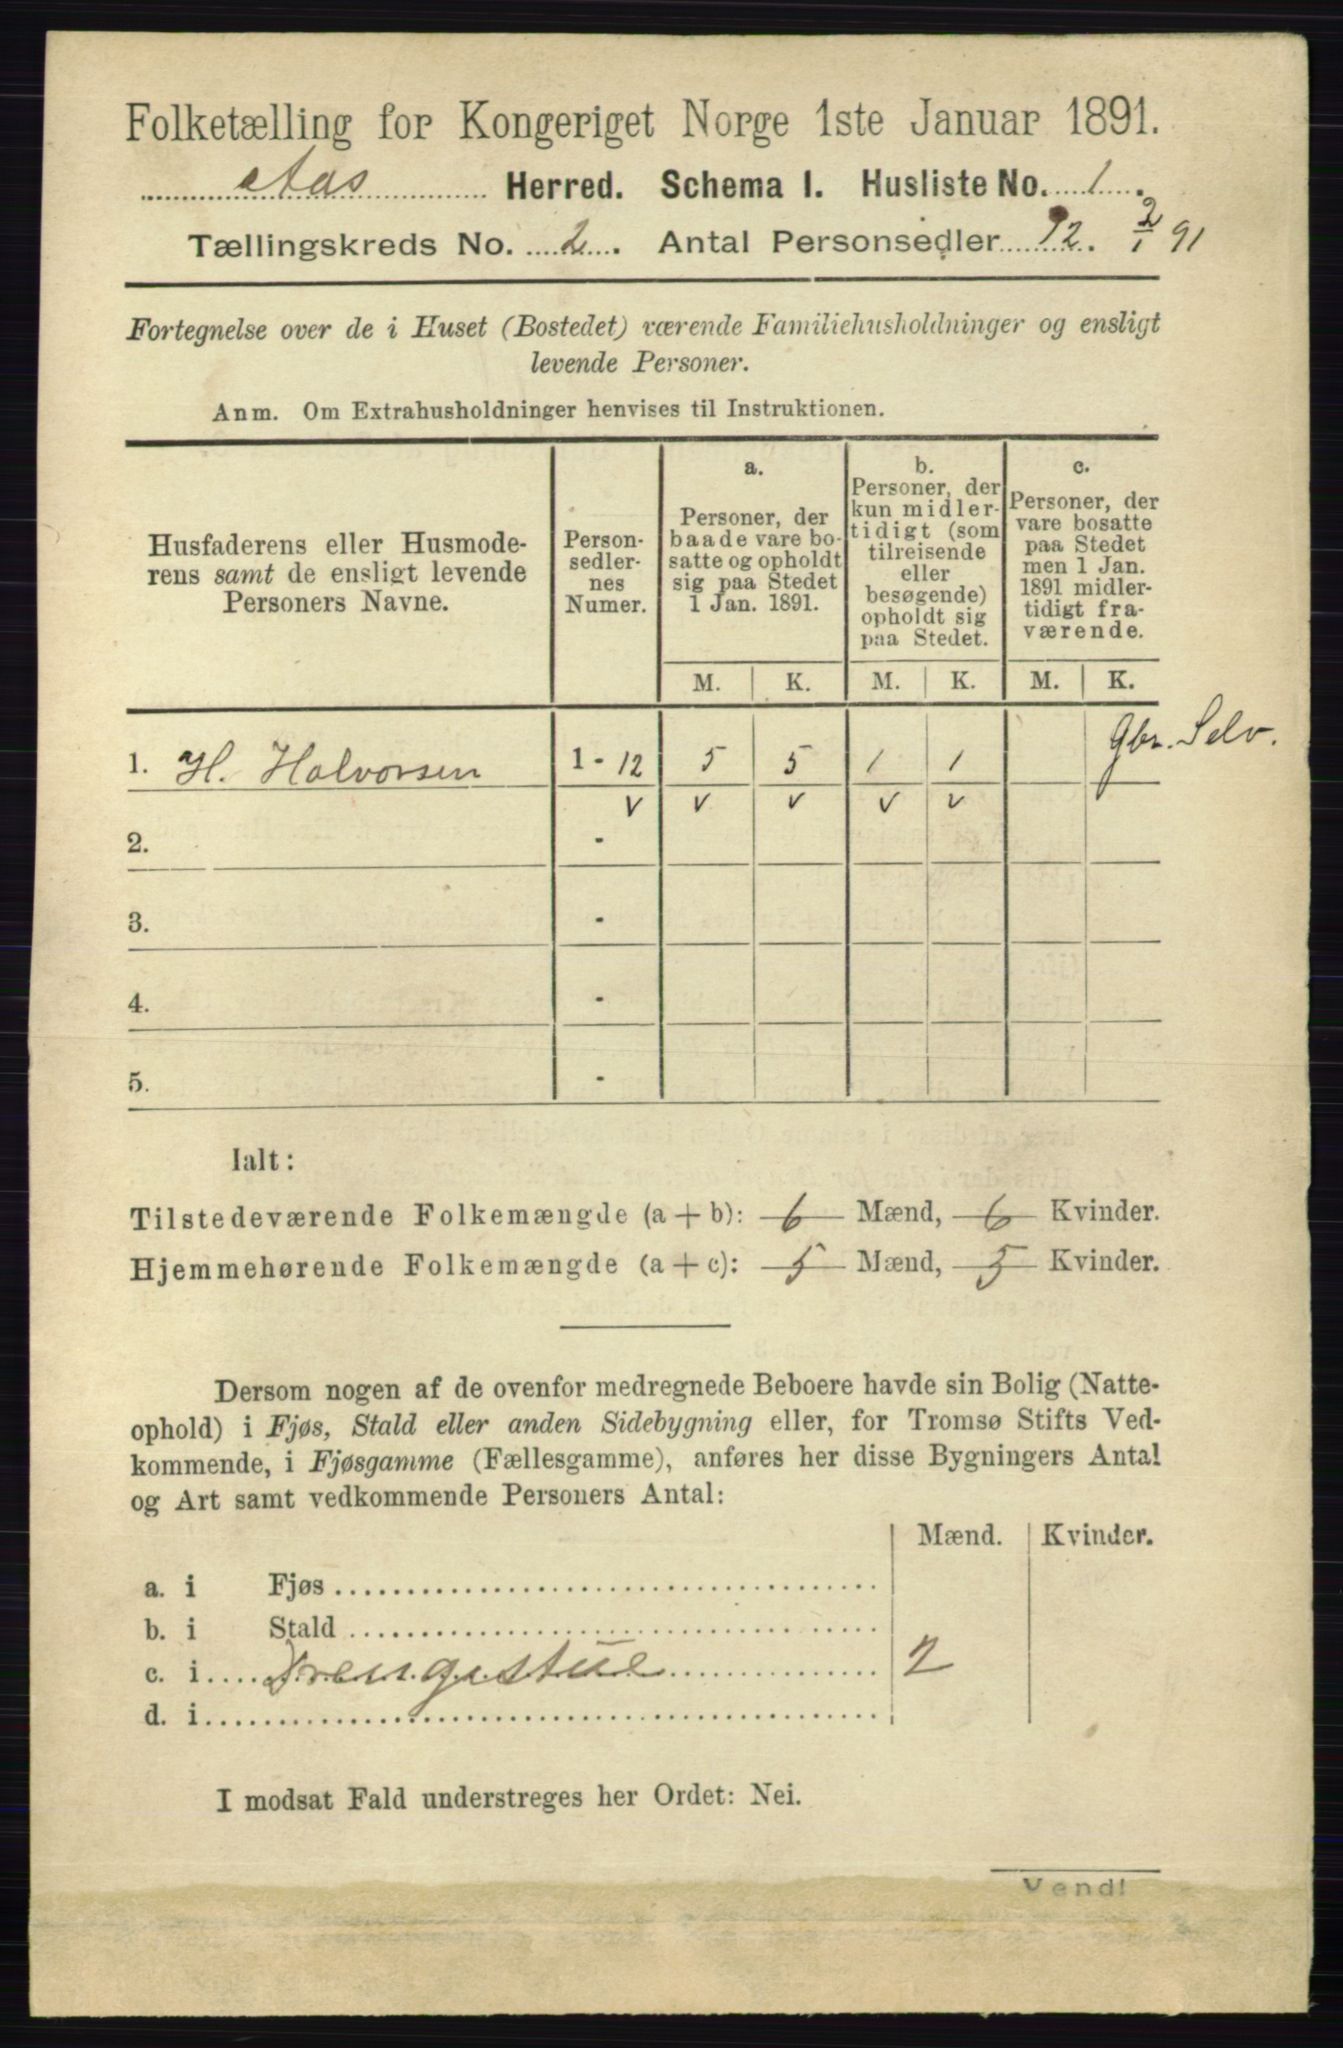 Folketælling for Kongeriget Norge 1ste Januar 1891.
Aas Herred. Schema I. Husliste No. 1.
Tællingskreds No. 2. Antal Personsedler 12. 2/1 91
Fortegnelse over de i Huset (Bostedet) værende Familiehusholdninger og ensligt
levende Personer.
Anm. Om Extrahusholdninger henvises til Instruktionen.
Husfaderens eller Husmode-
rens samt de ensligt levende
Personers Navne.
Person-
sedler-
nes
Numer.
a.
Personer, der
baade vare bo-
satte og opholdt
sig paa Stedet
1 Jan. 1891.
b.
Personer, der
kun midler-
tidigt (som
tilreisende
eller
besøgende)
opholdt sig
paa Stedet.
c.
Personer, der
vare bosatte
paa Stedet
men 1 Jan.
1891 midler-
tidigt fra-
værende.
M. K. M. K. M. K.
1. H. Halvorsen 1 - 12 5 5 1 1 Gbr. Selv.
v v v v v
2. -
3. -
4. -
5. -
Ialt:
Tilstedeværende Folkemængde (a + b): 6 Mænd, 6 Kvinder.
Hjemmehørende Folkemængde (a + c): 5 Mænd, 5 Kvinder.
Dersom nogen af de ovenfor medregnede Beboere havde sin Bolig (Natte-
ophold) i Fjøs, Stald eller anden Sidebygning eller, for Tromsø Stifts Ved-
kommende, i Fjøsgamme (Fællesgamme), anføres her disse Bygningers Antal
og Art samt vedkommende Personers Antal:
Mænd. Kvinder.
a. i Fjøs
b. i Stald
c. i Drengestue 2
d. i
I modsat Fald understreges her Ordet: Nei.
Vend!